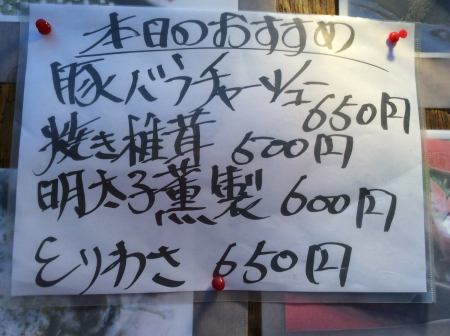 本日のおすすめ
豚バラチャーシュー 650円
焼き椎茸 500円
明太子薫製 600円
とりわさ 650円